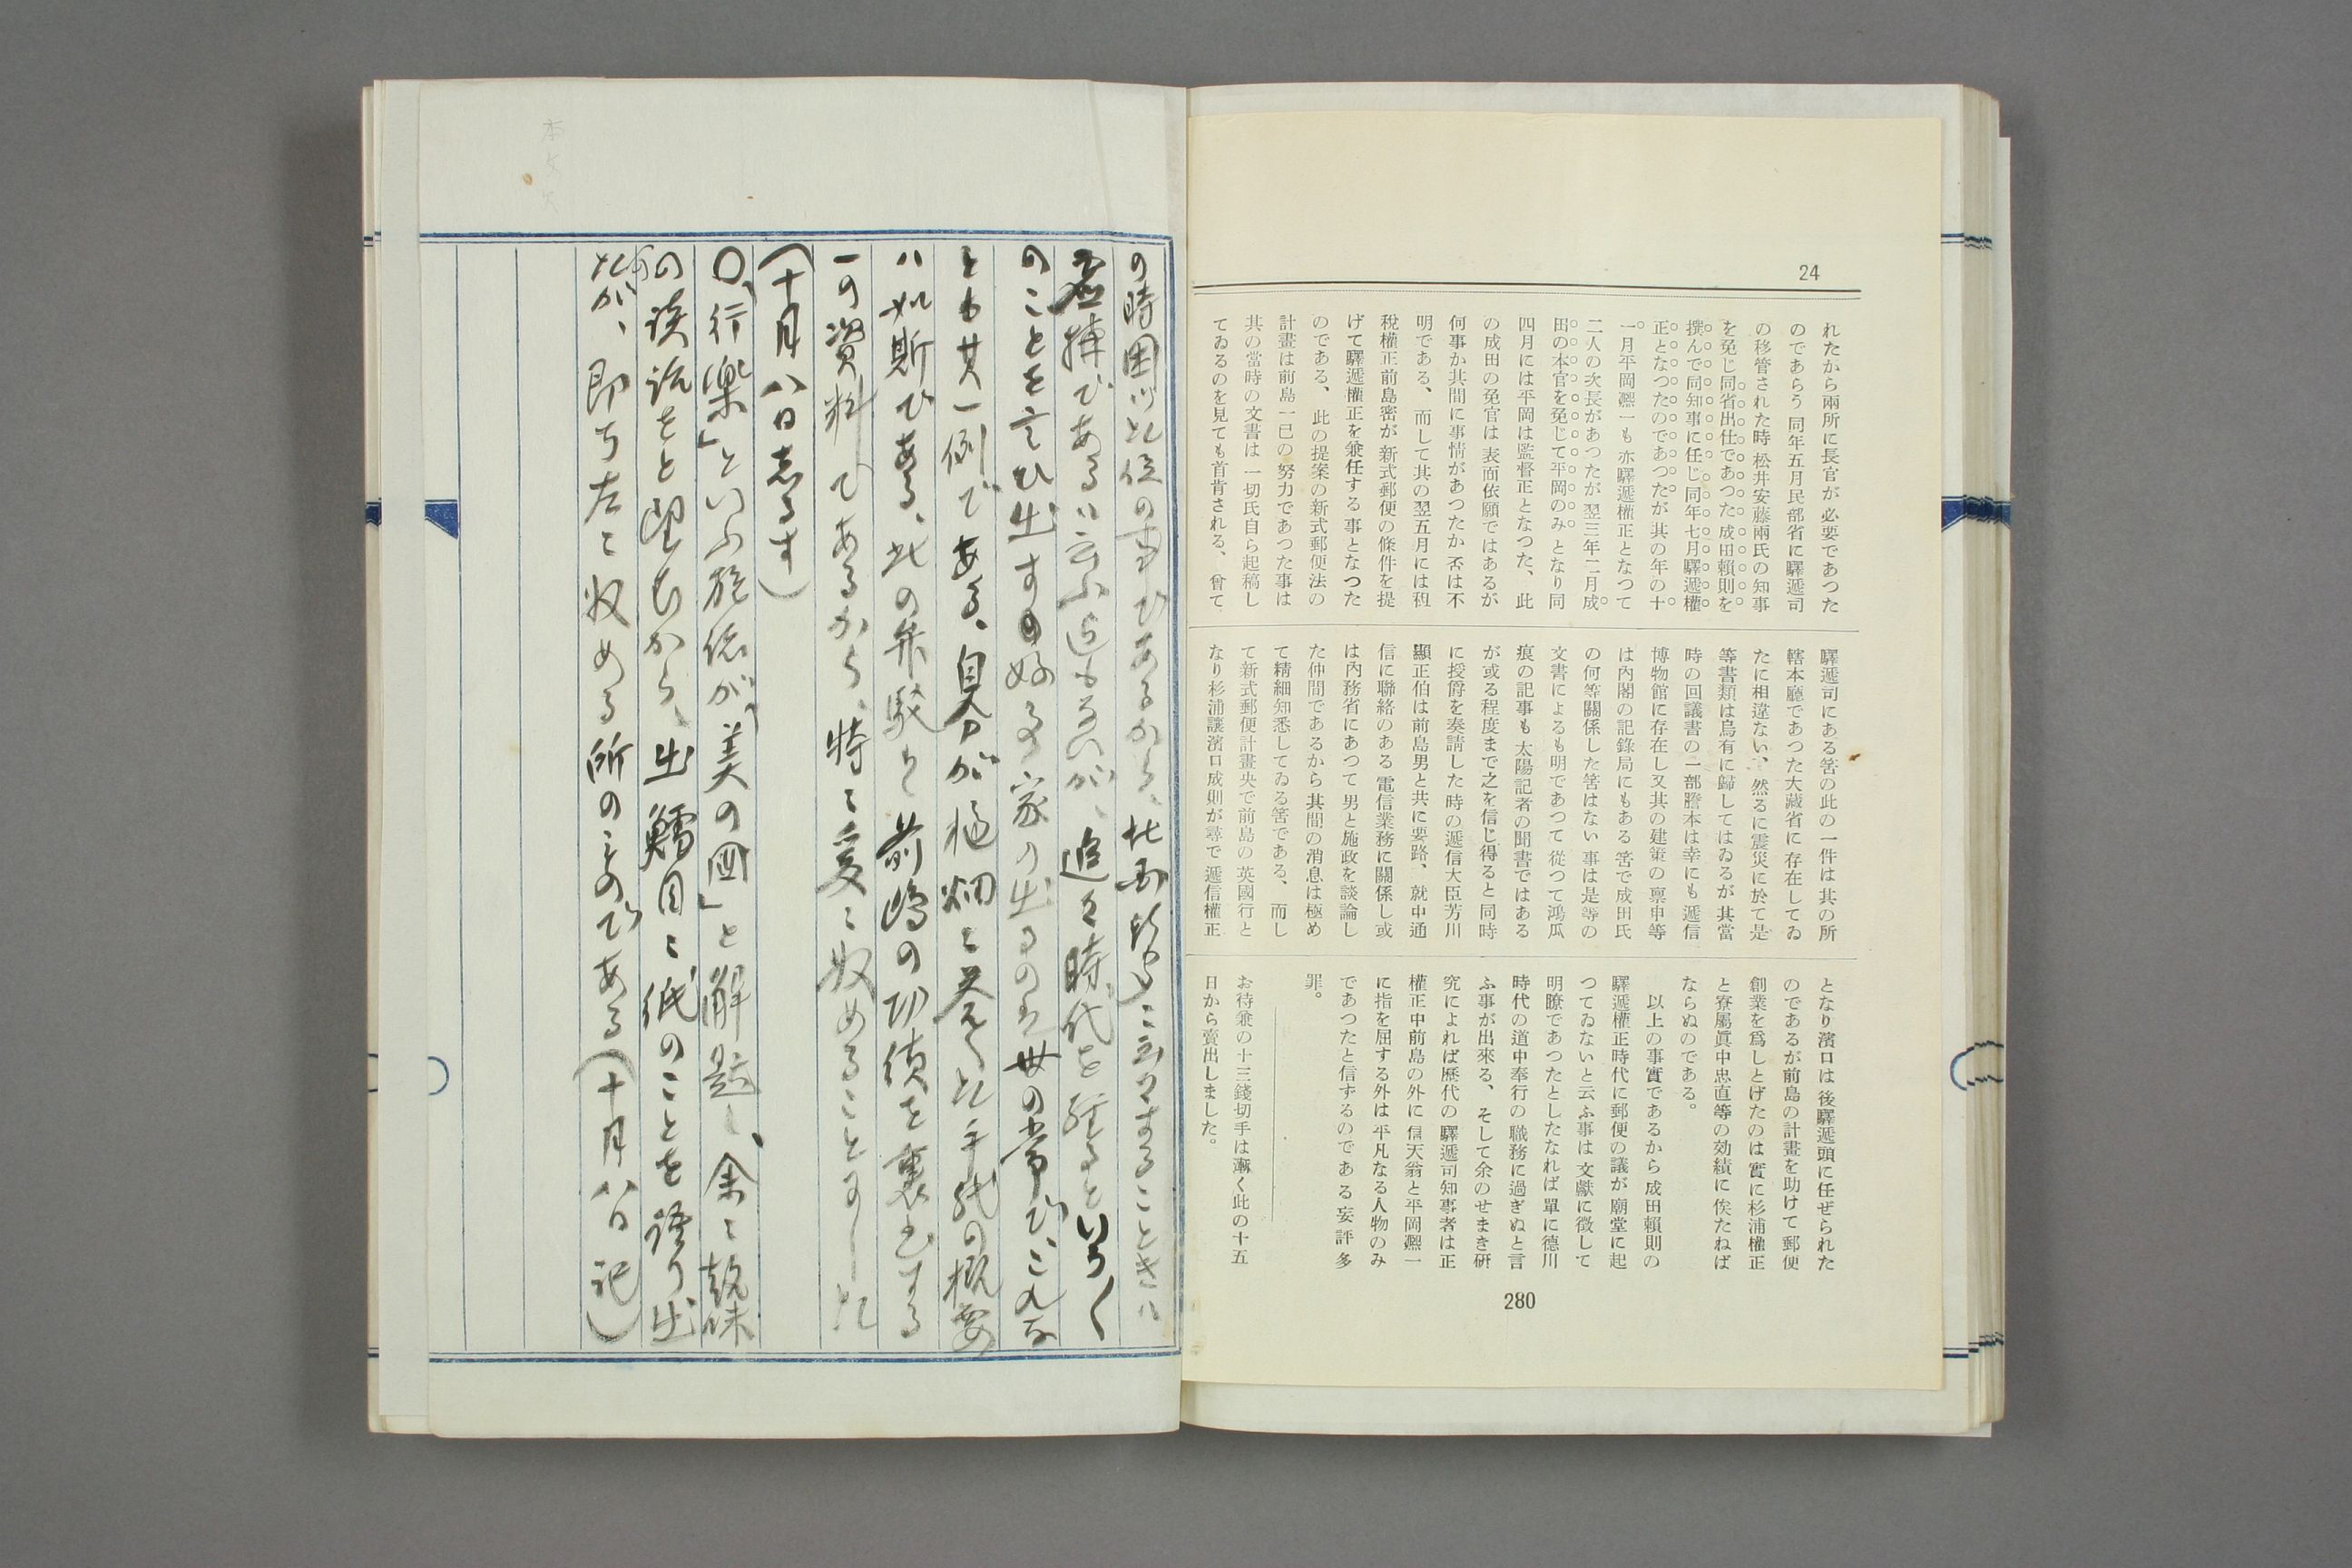 24
れたから兩所に長官が必要であつた
のであらう 同年五月民部省に驛遞司
の移管された時 松井安藤兩氏の知事
を免じ同省出仕であつた 成田賴則を
撰んで同知事に任じ同年七月驛遞權
正となつたのであつたが 其の年の十
一月平岡凞一も 亦驛遞權正となつて
二人の次長があつたが 翌三年二月成
田の本官を免じて平岡のみ となり同
四月には平岡は監督正となつた、此
の成田の免官は 表面依願ではあるが
何事か其間に事情があつたか 否は不
明である、而して其の翌五月には租
稅權正前島密が 新式郵便の條件を提
げて驛遞權正を兼任する 事となつた
のである、此の提案の新式郵便法の
計畫は前島一己の 努力であつた事は
其の當時の文書は 一切氏自ら起稿し
てゐるのを見ても首肯される、曾て
驛遞司にある筈の此の一件は 其の所
轄本廳であつた大藏省に 存在してゐ
たに相違ない、然るに震災に於て是
等書類は烏有に歸してはゐるが 其當
時の回議書の一部謄本は幸にも 遞信
博物館に存在し又其の建策の 禀申等
は內閣の記錄局にもある 筈で成田氏
の何等關係した筈はない 事は是等の
文書によるも明であつて 從つて鴻瓜
痕の記事も 太陽記者の聞書ではある
が或る程度まで之を信じ得ると 同時
に授爵を奏請した時の遞信大臣芳川
顯正伯は前島男と共に要路、就中通
信に聯絡のある 電信業務に關係し或
は內務省にあつて 男と施政を談論し
た仲間であるから 其間の消息は極め
て精細知悉してゐる筈である、而し
て新式郵便計畫央で前島の 英國行と
なり杉浦讓濱口成則が尋で 遞信權正
となり濱口は 後驛遞頭に任ぜられた
のであるが前島の計畫を助けて 郵便
創業を爲しとげたのは 實に杉浦權正
と寮屬眞中忠直等の効績に 俟たねば
ならぬのである。
以上の事實であるから 成田賴則の
驛遞權正時代に郵便の議が 廟堂に起
つてゐないと云ふ事は 文獻に徵して
明瞭であつたとしたなれば 單に德川
時代の道中奉行の 職務に過ぎぬと言
ふ事が出來る、そして余のせまき研
究によれば歷代の 驛遞司知事者は正
權正中前島の外に 信天翁と平岡凞一
に指を屈する外は 平凡なる人物のみ
であつたと信ずるのである 妄評多
罪。
お待兼の十三錢切手は漸く此の十五
日から賣出しました。
280
の時困つた位の事であるから、此
である
追々時代を經るといろ〱
のことを言ひ出すの
とも其一例である、自分が
の概要
ハ如斯である、此の弁駁も前嶋の功績を裏書する
一の資料であるから、特に爰に収めることゝした
(十月八日志るす)
〇「行楽」といふ雑誌が「美の国」と解題し、余に趣味
の談話をと望むから、出鱈目に紙のことを語り出
たが、即ち左に収める所のものである(十月八日記)